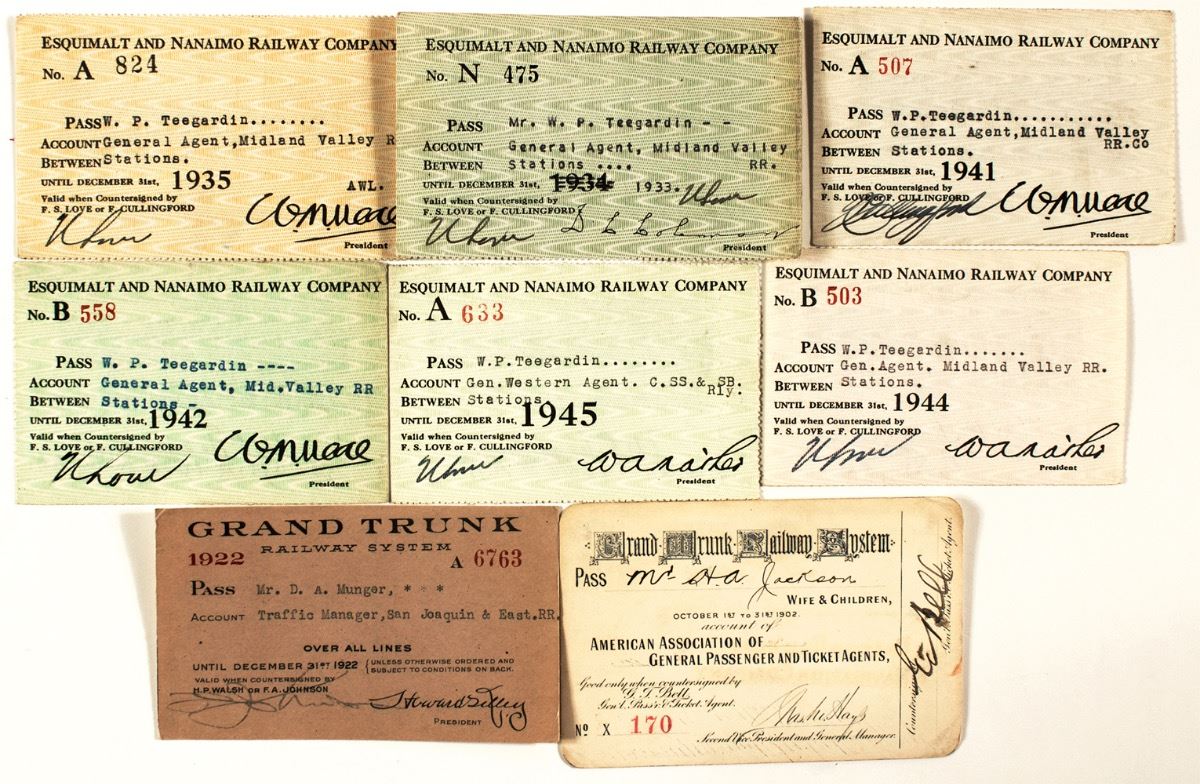 ESQUIMALT AND NANAIMO RAILWAY COMPANY
No. A 824
PASS W. P. Teegardin........
ACCOUNT General Agent,Midland Valley R
BETWEEN Stations.
UNTIL DECEMBER 31st, 1935
AWL.
Valid when Countersigned by
F. S. LOVE or F. CULLINGFORD
President
ESQUIMALT AND NANAIMO RAILWAY COMPANY
No. N 475
PASS Mr. W. P. Teegardin - -
ACCOUNT General Agent, Midland Valley
BETWEEN Stations .... RR.
UNTIL DECEMBER 31st, 1934 1933.
Valid when Countersigned by
F. S. LOVE or F. CULLINGFORD
President
ESQUIMALT AND NANAIMO RAILWAY COMPANY
No. A 507
PASS W.P.Teegardin...........
ACCOUNT General Agent,Midland Valley
RR.Co
BETWEEN Stations.
UNTIL DECEMBER 31st, 1941
Valid when Countersigned by
F. S. LOVE or F. CULLINGFORD
President
ESQUIMALT AND NANAIMO RAILWAY COMPANY
No. B 558
PASS W. P. Teegardin ----
ACCOUNT General Agent, Mid.Valley RR
BETWEEN Stations -
UNTIL DECEMBER 31st, 1942
Valid when Countersigned by
F. S. LOVE or F. CULLINGFORD
President
ESQUIMALT AND NANAIMO RAILWAY COMPANY
No. A 633
PASS W.P.Teegardin........
ACCOUNT Gen.Western Agent. C.SS.& SB.
Rly.
BETWEEN Stations
UNTIL DECEMBER 31st, 1945
Valid when Countersigned by
F. S. LOVE or F. CULLINGFORD
President
ESQUIMALT AND NANAIMO RAILWAY COMPANY
No. B 503
PASS W.P.Teegardin.......
ACCOUNT Gen.Agent. Midland Valley RR.
BETWEEN Stations.
UNTIL DECEMBER 31st, 1944
Valid when Countersigned by
F. S. LOVE or F. CULLINGFORD
President
GRAND TRUNK
1922 RAILWAY SYSTEM
A 6763
PASS Mr. D. A. Munger, * * *
ACCOUNT Traffic Manager,San Joaquin & East.RR.
OVER ALL LINES
UNTIL DECEMBER 31ST 1922 {UNLESS OTHERWISE ORDERED AND
SUBJECT TO CONDITIONS ON BACK.
VALID WHEN COUNTERSIGNED BY
H.P. WALSH OR F.A. JOHNSON
PRESIDENT
Grand Trunk Railway System
PASS Mr. H.A. Jackson
WIFE & CHILDREN,
OCTOBER 1ST TO 31ST 1902.
account of
AMERICAN ASSOCIATION OF
GENERAL PASSENGER AND TICKET AGENTS,
Good only when countersigned by
G. T. Bell
Gen'l Pass'r & Ticket Agent.
Nº X 170
Second Vice President and General Manager.
Countersigned
Gen'l Pass'r & Ticket Agent.